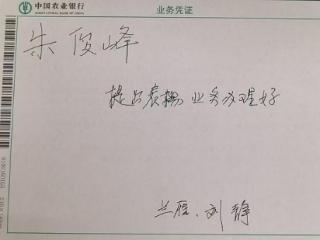 中国农业银行 业务凭证
AGRICULTURAL BANK OF CHINA
朱俊峰
提出表扬 业务办理好
兰雁、刘静